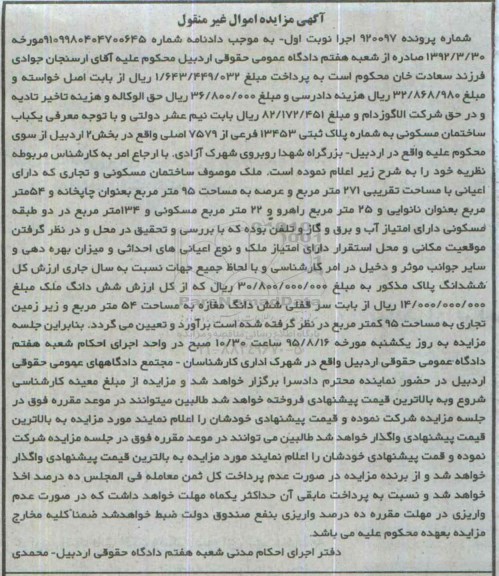 آگهی مزایده اموال غیر منقول
شماره پرونده ۹۲۰۰۹۷ اجرا نوبت اول- به موجب دادنامه شماره ۹۱۰۹۹۸۰۴۰۴۷۰۰۶۴۵مورخه
۱۳۹۲/۳/۳۰ صادره از شعبه هفتم دادگاه عمومی حقوقی اردبیل محکوم علیه آقای ارسنجان جوادی
فرزند سعادت خان محکوم است به پرداخت مبلغ ۱/۶۴۳/۴۴۹/۰۳۲ ریال از بابت اصل خواسته و
مبلغ ۳۲/۸۶۸/۹۸۰ ریال هزینه دادرسی و مبلغ ۳۶/۸۰۰/۰۰۰ ریال حق الوکاله و هزینه تاخیر تادیه
و در حق شرکت الاگوزدام و مبلغ ۸۲/۱۷۲/۴۵۱ ریال بابت نیم عشر دولتی و با توجه معرفی یکباب
ساختمان مسکونی به شماره پلاک ثبتی ۱۳۴۵۳ فرعی از ۷۵۷۹ اصلی واقع در بخش۲ اردبیل از سوی
محکوم علیه واقع در اردبیل- بزرگراه شهدا روبروی شهرک آزادی، با ارجاع امر به کارشناس مربوطه
نظریه خود را به شرح زیر اعلام نموده است. ملک موصوف ساختمان مسکونی و تجاری که دارای
اعیانی با مساحت تقریبی ۲۷۱ متر مربع و عرصه به مساحت ۹۵ متر مربع بعنوان چاپخانه و ۵۴متر
مربع بعنوان نانوایی و ۲۵ متر مربع راهرو و ۲۲ متر مربع مسکونی و ۱۳۴متر مربع در دو طبقه
مسکونی دارای امتیاز آب و برق و گاز و تلفن بوده که با بررسی و تحقیق در محل و در نظر گرفتن
موقعیت مکانی و محل استقرار دارای امتیاز ملک و نوع اعیانی های احداثی و میزان بهره دهی و
سایر جوانب موثر و دخیل در امر کارشناسی و با لحاظ جمیع جهات نسبت به سال جاری ارزش کل
ششدانگ پلاک مذکور به مبلغ ۳۰/۸۰۰/۰۰۰/۰۰۰ ریال که از کل ارزش شش دانگ ملک مبلغ
۱۴/۰۰۰/۰۰۰/۰۰۰ ریال از بابت سر قفلی شش دانگ مغازه به مساحت ۵۴ متر مربع و زیر زمین
تجاری به مساحت ۹۵ کمتر مربع در نظر گرفته شده است برآورد و تعیین می گردد. بنابراین جلسه
مزایده به روز یکشنبه مورخه ۹۵/۸/۱۶ ساعت ۱۰/۳۰ صبح در واحد اجرای احکام شعبه هفتم
دادگاه عمومی حقوقی اردبیل واقع در شهرک اداری کارشناسان - مجتمع دادگاههای عمومی حقوقی
اردبیل در حضور نماینده محترم دادسرا برگزار خواهد شد و مزایده از مبلغ معینه کارشناسی
شروع وبه بالاترین قیمت پیشنهادی فروخته خواهد شد طالبین میتوانند در موعد مقرره فوق در
جلسه مزایده شرکت نموده و قیمت پیشنهادی خودشان را اعلام نمایند مورد مزایده به بالاترین
قیمت پیشنهادی واگذار خواهد شد طالبین می توانند در موعد مقرره فوق در جلسه مزایده شرکت
نموده و قمت پیشنهادی خودشان را اعلام نمایند مورد مزایده به بالترین قیمت پیشنهادی واگذار
خواهد شد و از برنده مزایده در صورت عدم پرداخت کل ثمن معامله فی المجلس ده درصد اخذ
خواهد شد و نسبت به پرداخت مابقی آن حداکثر یکماه مهلت خواهد داشت که در صورت عدم
واریزی در مهلت مقرره ده درصد واریزی بنفع صندوق دولت ضبط خواهدشد ضمنا کلیه مخارج
مزایده بعهده محکوم علیه می باشد.
دفتر اجرای احکام مدنی شعبه هفتم دادگاه حقوقی اردبیل- محمدی